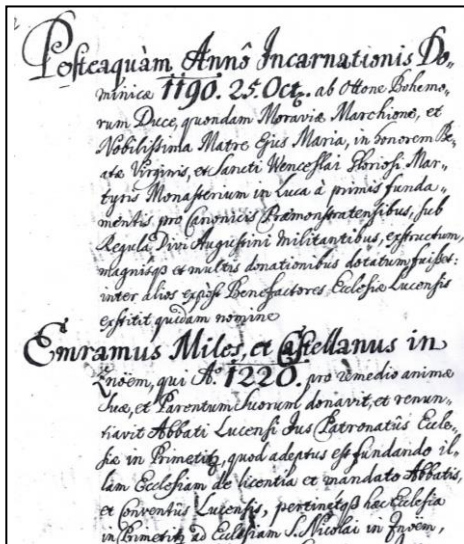 2
Posteaquàm Annô Incarnationis Do-
minicæ 1190. 25. Oct. ab Ottone Bohemo-
rum Duce, quondam Moraviæ Marchione, et
Nobilissima Matre Ejus Maria, in honorem Be-
atæ Virginis, et Sancti Wenceslai Gloriosi Mar-
tyris Monasterium in Luca à primis funda-
mentis pro Canonicis Præmonstratensibus, sub
Regula Divi Augustini militantibus, exstructum,
magnisq3 et multis donationibus dotatum fuisset:
inter alios exposi Benefactores Ecclesiæ Lucensis
exstitit quidam nomine
Emramus Miles, et Castellanus in
Znoëm, qui Aº. 1220. pro remedio animæ
suæ, et Parentum suorum donavit, et renun-
tiavit Abbati Lucensi Jus Patronatûs Eccle-
siæ in Primetitz, quod adeptus est fundando il-
lam Ecclesiam de licentia et mandato Abbatis,
et Conventûs Lucensis, pertinetq3 hæc Ecclesia
in Primetitz ad Ecclesiam S. Nicolai in Znoëm,